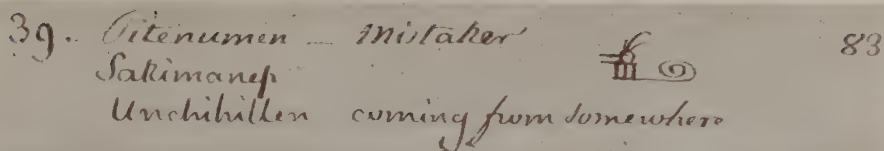 39. Pitenumen _ mistaker 83
Sakimanep
Unchihillen coming from somewhere